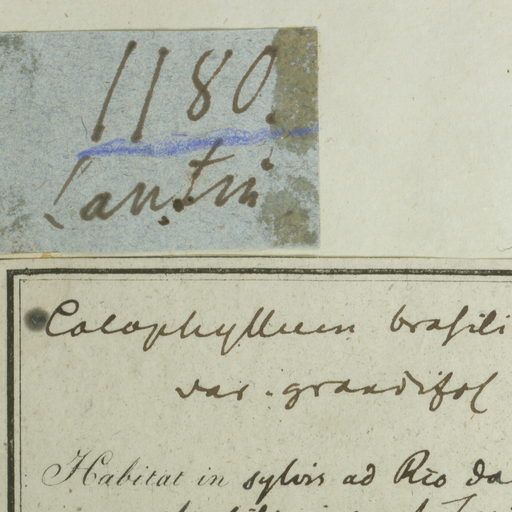 1180.
Calophyllum brasili
var. grandifol
Habitat in sylvis ad Rio da